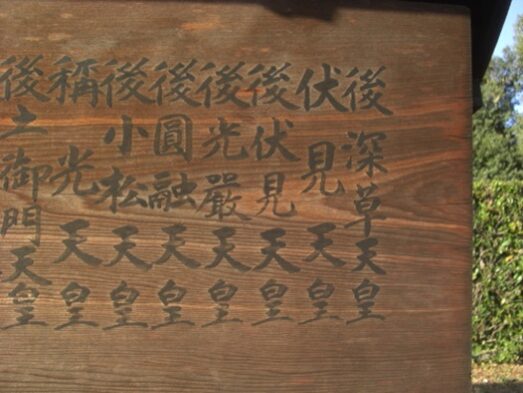 後深草天皇
伏見天皇
後伏見天皇
後光嚴天皇
後圓融天皇
後小松天皇
稱光天皇
後土御門天皇